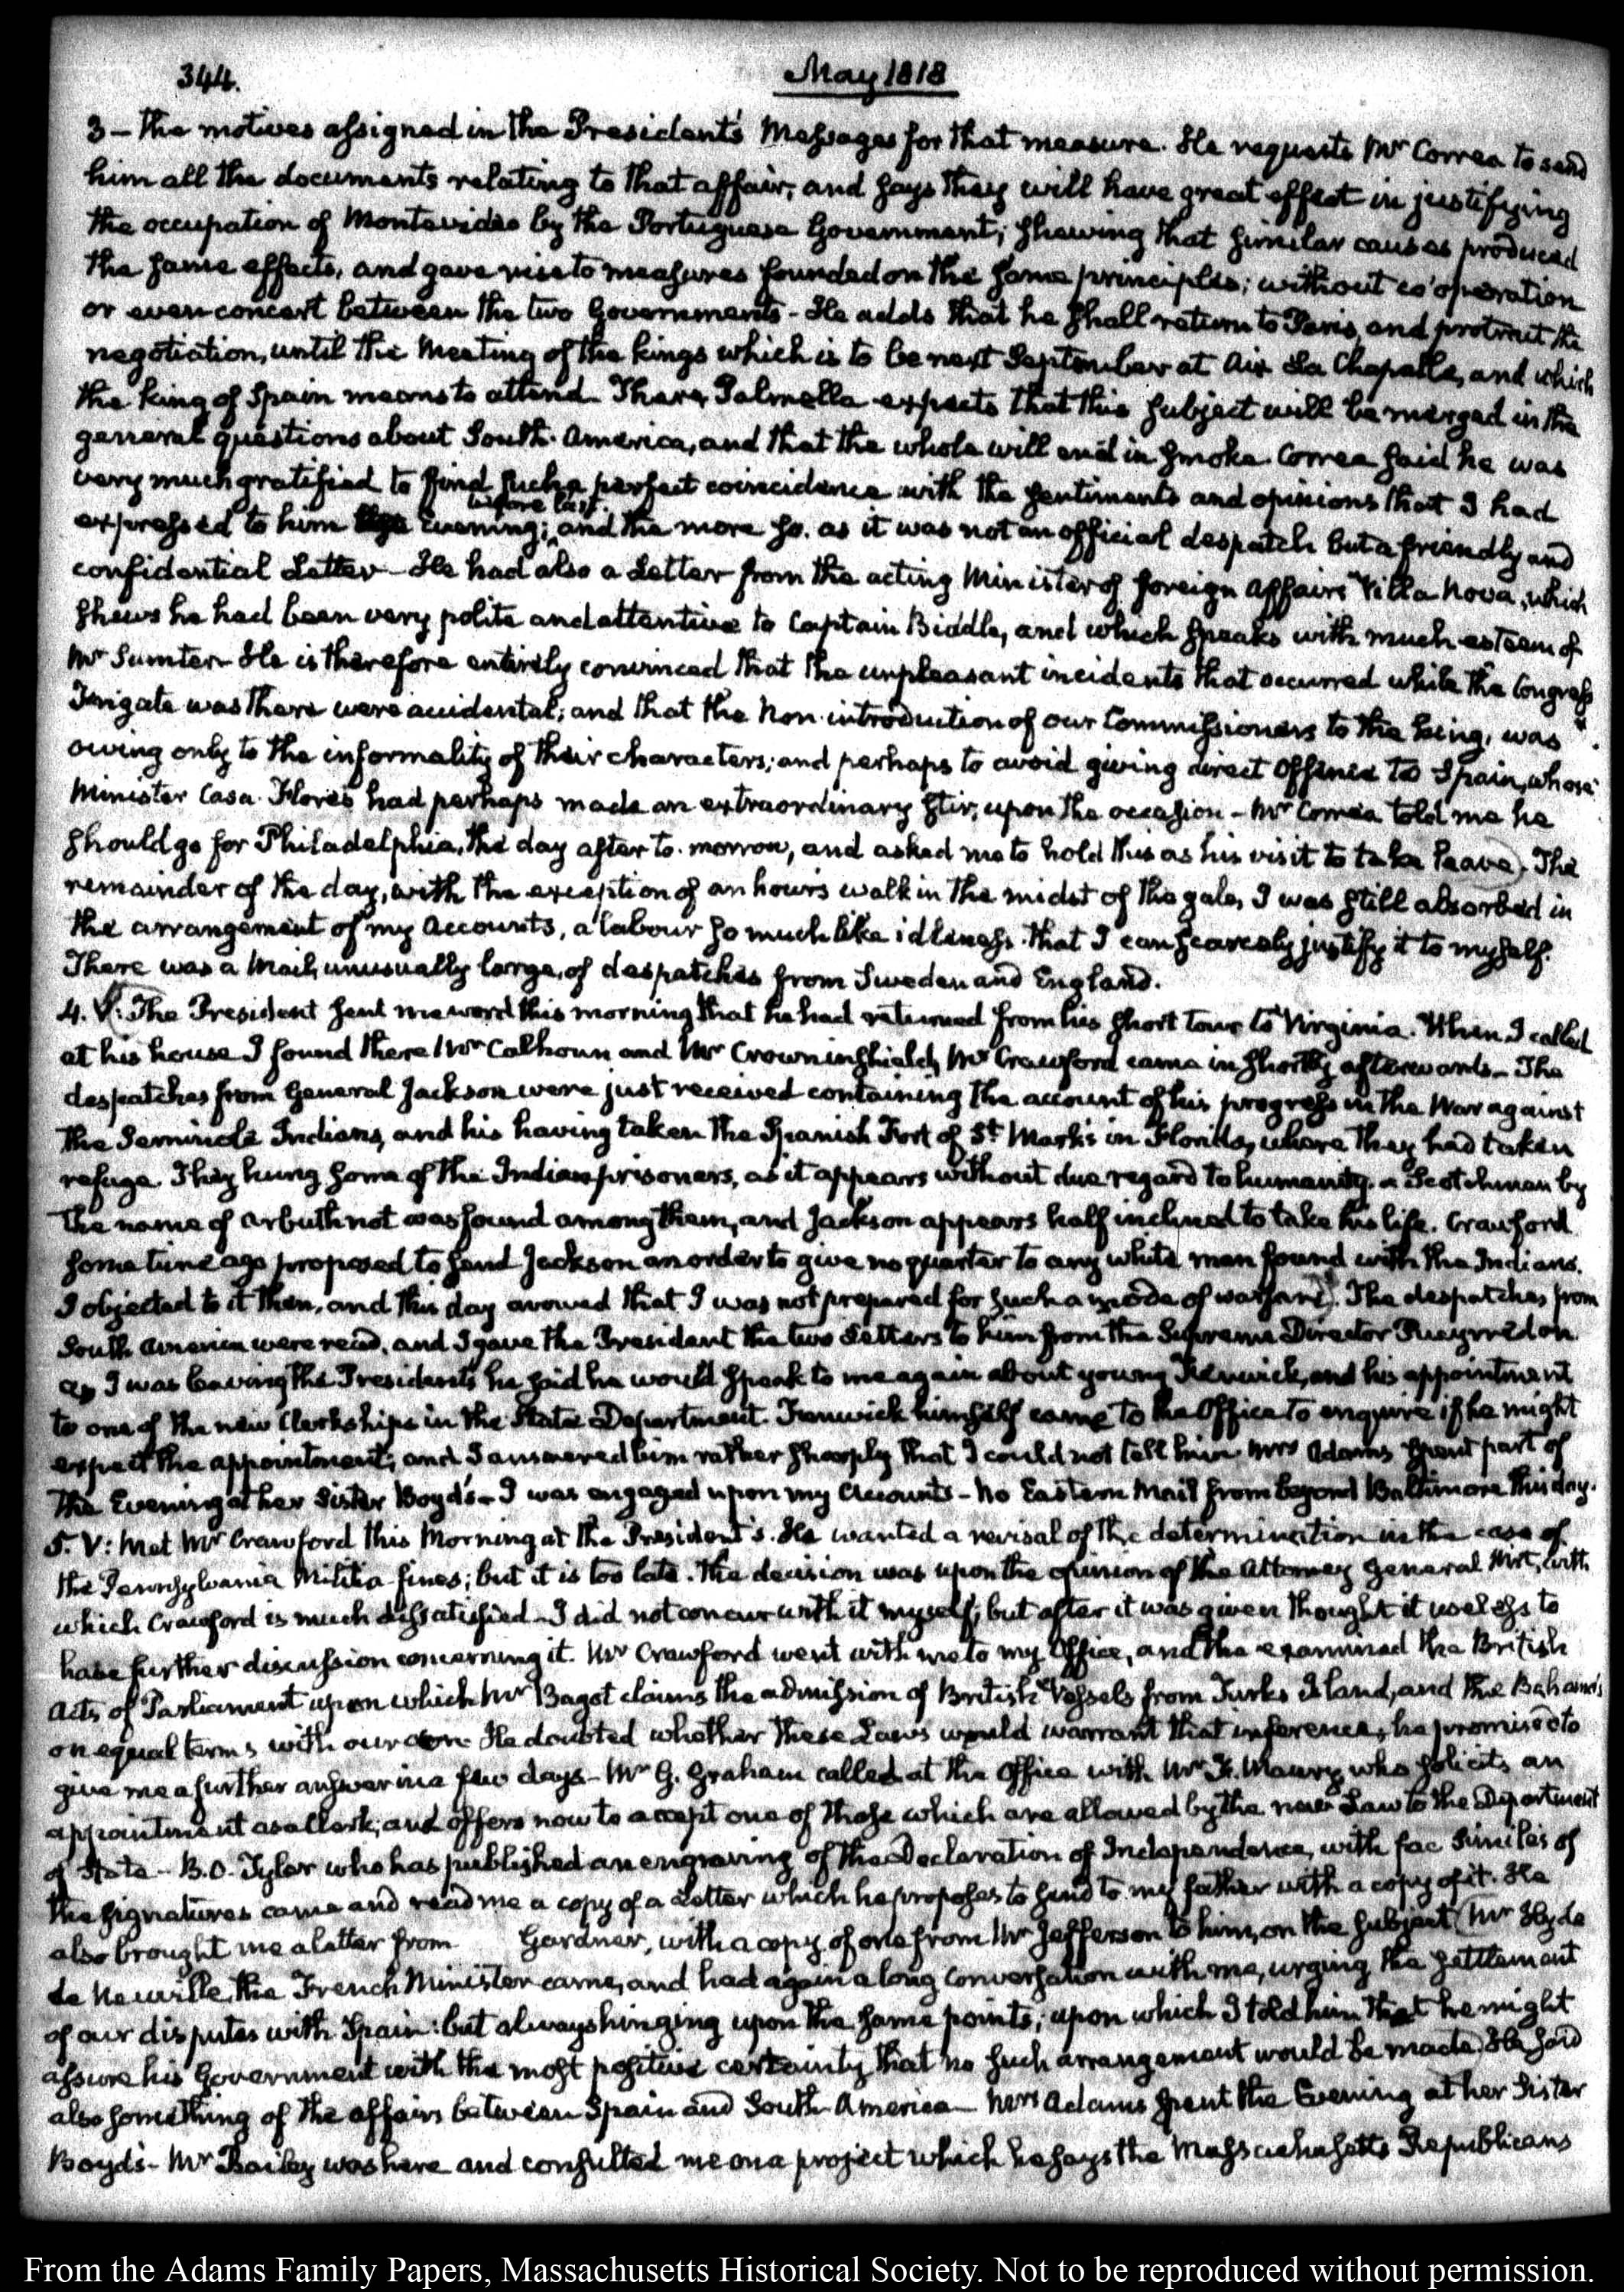 344.
May 1818
3 – the motives assigned in the President's Messages for that measure. He requests Mr Correa to send
him all the documents relating to that affair, and says they will have great effect in justifying
the occupation of Montevideo by the Portuguese Government; shewing that similar causes produced
the same effects, and gave rise to measures founded on the same principles; without co'operation
or even concert between the two Governments – He adds that he shall return to Paris, and protract the
negotiation, until the Meeting of the kings which is to be next September at Aix La Chapelle, and which
the King of Spain means to attend. There, Palmella expects that this subject will be merged in the
general questions about South-America, and that the whole will end in smoke. Correa said he was
very much gratified to find such a perfect coincidence with the sentiments and opinions that I had
before last.
expressed to him Evening; and the more so. as it was not an official despatch but a friendly and
confidential Letter – He had also a Letter from the acting Minister of foreign affairs Villa Nova, which
shews he had been very polite and attentive to Captain Biddle, and which speaks with much esteem of
Mr Sumter. He is therefore entirely convinced that the unpleasant incidents that occurred while the Congress
Frigate was there were accidental; and that the Non-introduction of our Commissioners to the King, was
owing only to the informality of their characters; and perhaps to avoid giving direct offence to Spain, whose
Minister Casa-Flores had perhaps made an extraordinary stir, upon the occasion – Mr Correa told me he
should go for Philadelphia, the day after to-morrow, and asked me to hold this as his visit to take leave). The
remainder of the day, with the exception of an hour's walk in the midst of the gale, I was still absorbed in
the arrangement of my Accounts, a labour so much like idleness that I can scarcely justify it to myself.
There was a Mail, unusually large, of despatches from Sweden and England.
4. V: The President sent me word this morning that he had returned from his short tour to Virginia. When I called
at his house I found there Mr Calhoun and Mr Crowninshield, Mr Crawford came in shortly afterwards – The
despatches from General Jackson were just received containing the account of his progress in the War against
the Seminole Indians, and his having taken the Spanish Fort of St Mark's in Florida, where they had taken
refuge. They hung some of the Indian prisoners, as it appears without due regard to humanity. a Scotchman by
the name of Arbuthnot was found among them, and Jackson appears half inclined to take his life. Crawford
some time ago proposed to send Jackson an order to give no quarter to any white man found with the Indians.
I objected to it then, and this day avowed that I was not prepared for such a mode of warfare). The despatches from
South America were read, and I gave the President the two Letters to him from the Supreme Director Pueyrredon.
As I was leaving the President's he said he would speak to me again about young Fenwick, and his appointment
to one of the new Clerkships in the State Department. Fenwick himself came to the Office to enquire if he might
expect the appointment; and I answered him rather sharply that I could not tell him. Mrs Adams spent part of
the Evening at her Sister Boyd's – I was engaged upon my Accounts – No Eastern Mail from beyond Baltimore this day.
5. V: Met Mr Crawford this Morning at the President's. He wanted a revisal of the determination in the case of
the Pennsylvania Militia fines; but it is too late. The decision was upon the opinion of the Attorney General Wirt, with
which Crawford is much dissatisfied – I did not concur with it myself; but after it was given thought it useless to
have further discussion concerning it. Mr Crawford went with me to my Office, and the examined the British
Acts of Parliament upon which Mr Bagot claims the admission of British Vessels from Turks Island, and the Bahamas
on equal terms with our own. He doubted whether these Laws would warrant that inference; he promised to
give me a further answer in a few days – Mr G. Graham called at the Office with Mr F. Maury who solicits an
appointment as a Clerk; and offers now to accept one of those which are allowed by the new Law to the Department
of State – B. O. Tyler who has published an engraving of the Declaration of Independence, with fac similes of
the signatures came and read me a copy of a Letter which he proposes to send to my father with a copy of it. He
also brought me a letter from Gardner, with a copy of one from Mr Jefferson to him, on the subject (Mr Hyde
de Neuville, the French Minister came, and had again a long conversation with me, urging the settlement
of our disputes with Spain: but always hinging upon the same points; upon which I told him that he might
assure his Government with the most positive certainty that no such arrangement would be made). He said
also something of the affairs between Spain and South-America – Mrs Adams spent the Evening at her Sister
Boyd's – Mr Bailey was here and consulted me on a project which he says the Massachusetts Republicans
From the Adams Family Papers, Massachusetts Historical Society. Not to be reproduced without permission.